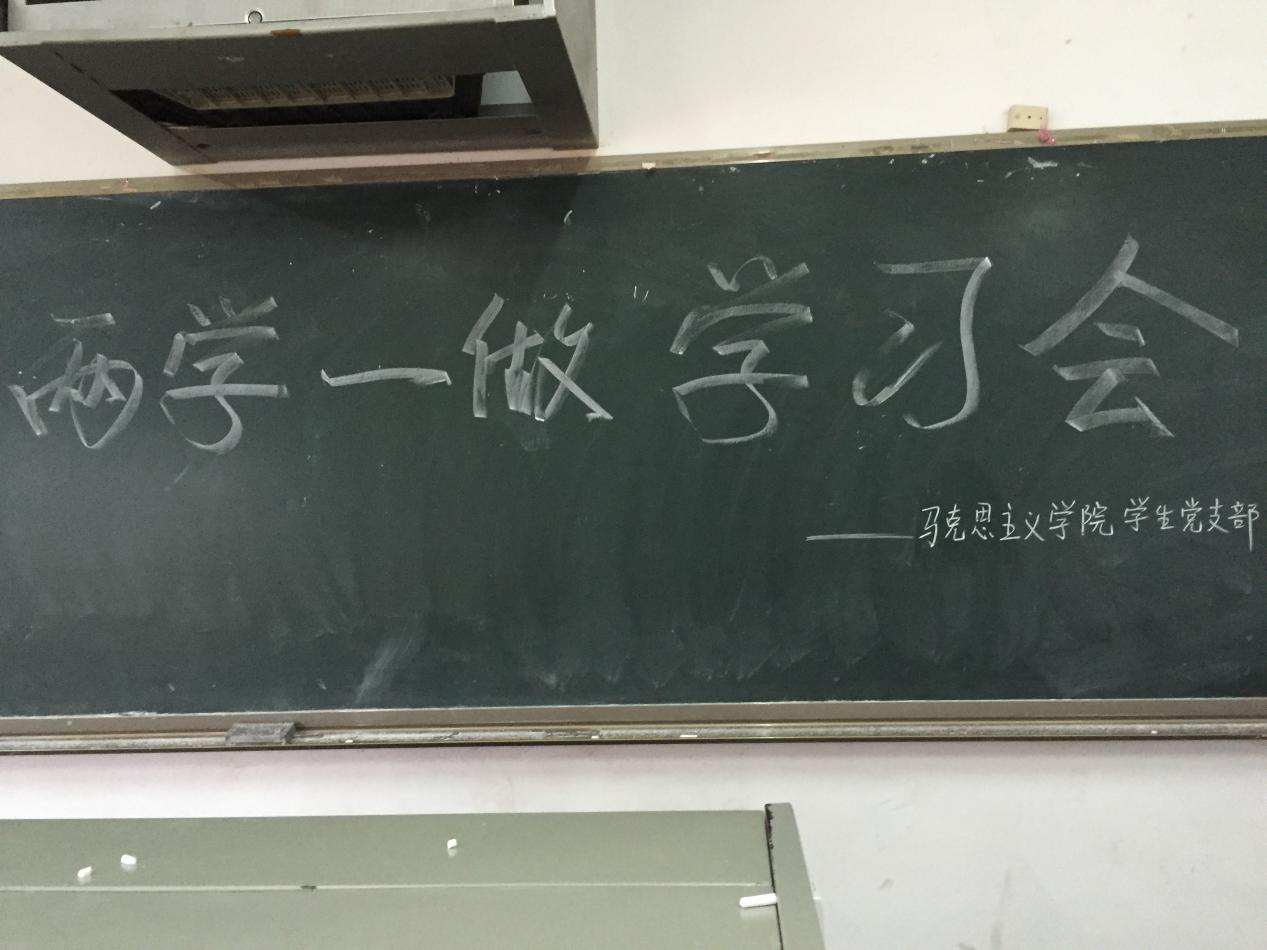 两学一做 学习会
——马克思主义学院 学生党支部